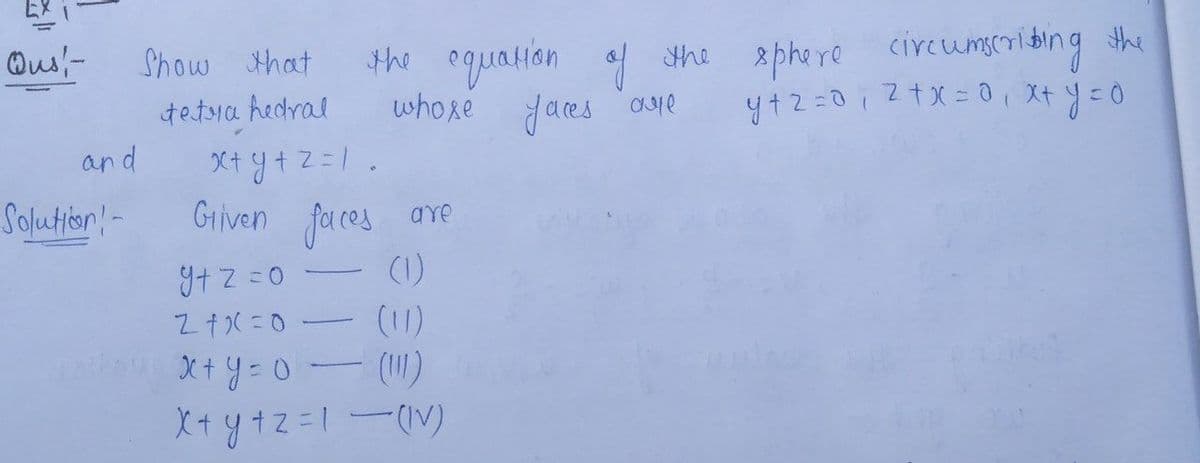 Ex
Qus:- Show that the equation of the sphere circumscribing the
tetra hedral whose faces are y+z=0, z+x=0, x+y=0
and x+y+z=1.
Solution:- Given faces are
y+z=0 — (I)
z+x=0 — (II)
x+y=0 — (III)
x+y+z=1 — (IV)